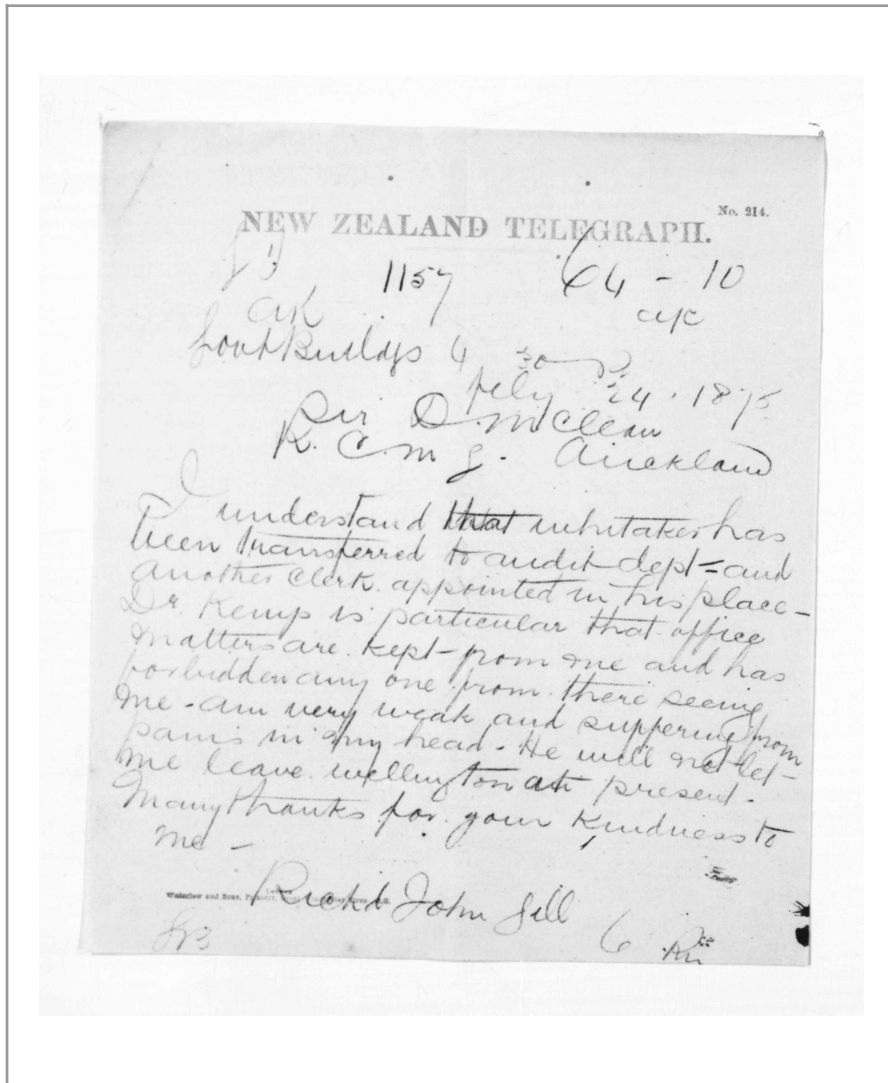 No. 214.
NEW ZEALAND TELEGRAPH.
1157 64 - 10
AK AK
Govt Buildgs 4 30
July 24 . 1875
Sir D. McClean
K. C. m g. Auckland
I understand that Whitaker has
been transferred to audit dept = and
another clerk appointed in his place -
Dr. Kemp is particular that office
matters are kept from me and has
forbidden any one from there seeing
me - am very weak and suffering from
pains in my head - He will not let
me leave Wellington at present.
Many thanks for your kindness to
me -
Richd John Gill
Waterlow and Sons,
6